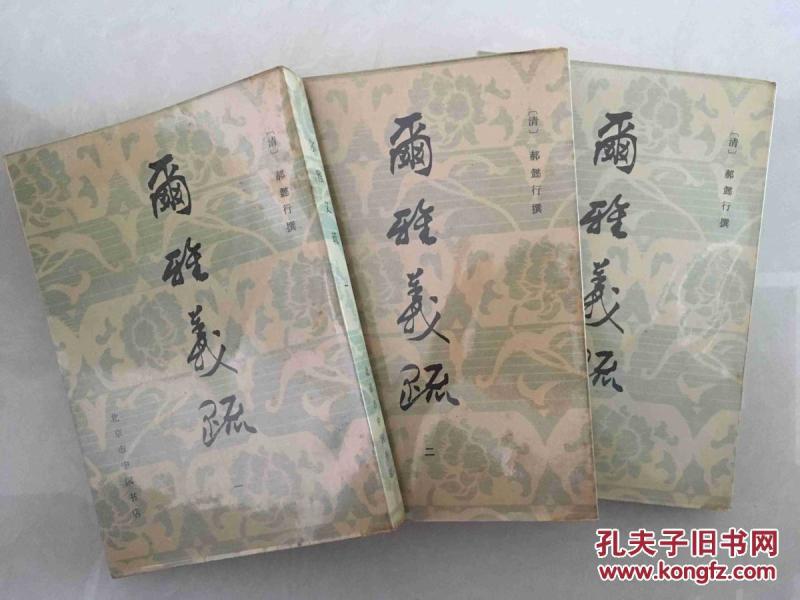 [清] 郝懿行撰
爾雅義疏
一
北京市中国书店
[清] 郝懿行撰
爾雅義疏
二
[清] 郝懿行撰
爾雅義疏
孔夫子旧书网
www.kongfz.com